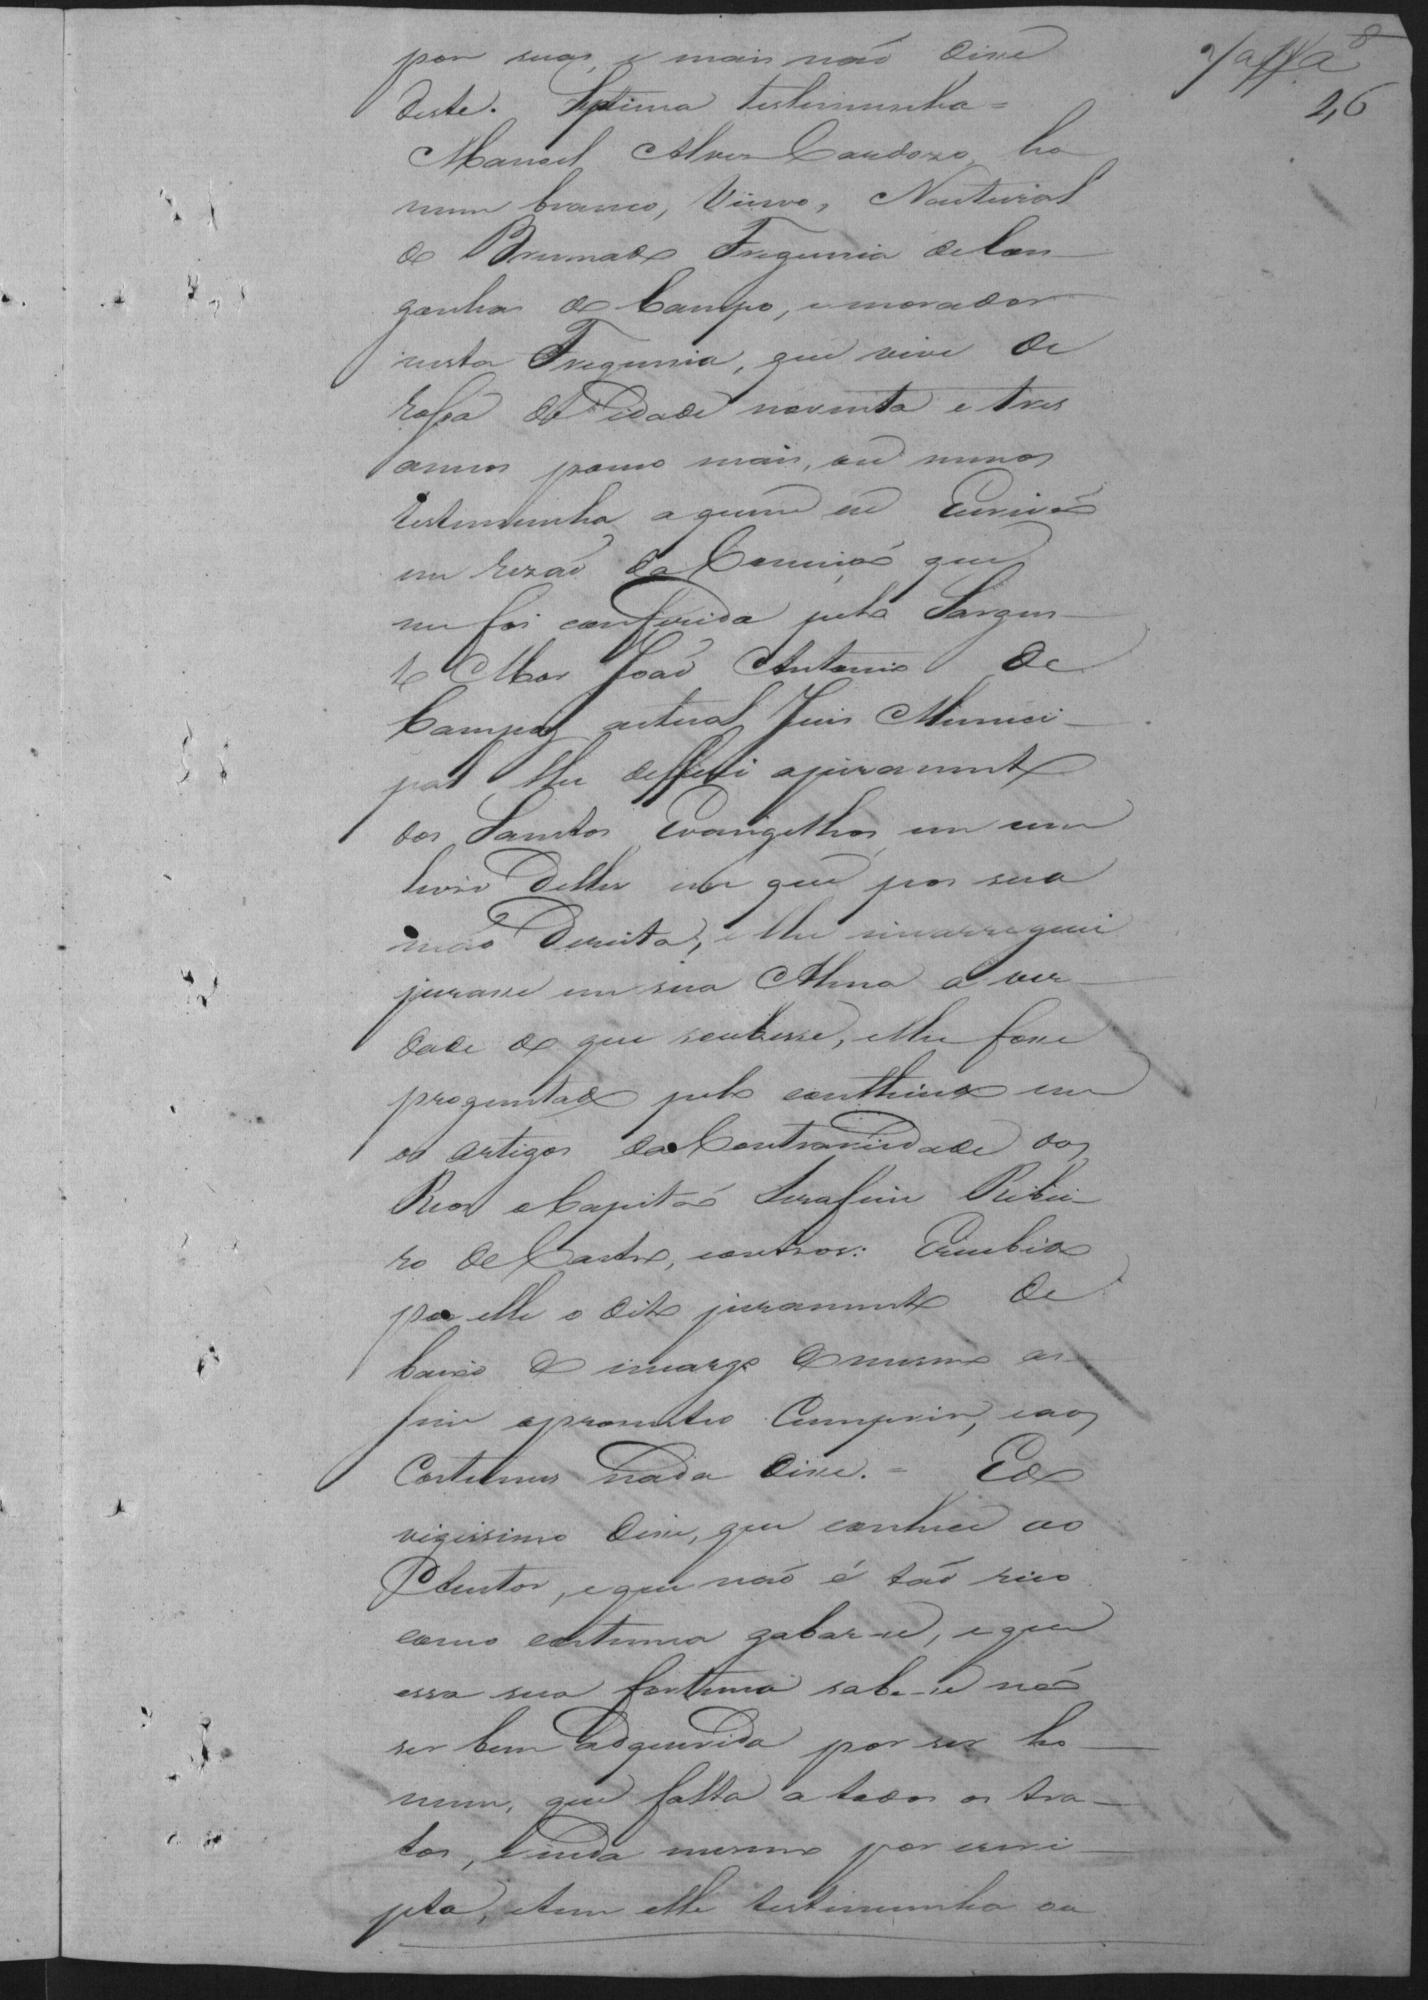 46
por suas, e mais não disse
deste. Septima testemunha =
Manoel Alves Cardozo, ho
mem branco, Viuvo, Nautural
do Brumado Freguesia de Con
gonhas do Campo, e morador
nesta Freguesia, que vive de
rossa de idade noventa e tres
annos pouco mais, ou menos
testemunha aquem eu Escrivão
em rezão da Comissão que
me foi conferida pelo Sargen
to Mor João Antonio de
Campos actual Juis Munici
pal lhe defferi ojuramento
dos Santos Evangelhos em um
livro delles em que pos sua
mão Dereita, e lhe encarreguei
jurasse em sua Alma a ver
dade do que soubesse, elhe fosse
proguntado pelo contheudo em
os artigos da Contrariedade dos
Reos o Capitão Serafim Ribei
ro de Castro, eoutros: Ercebido
por elle o dito juramento de
baixo do incargo do mesmo as
sim oprometeo Cumprir, eaos
Costumes nada disse. = Edo
vigessimo disse, que conhece ao
Autor, e que não é tão rico
como costuma gabar-se, e que
essa sua fortuna sabe-se não
ser bem adquerida por ser ho
mem, que falta a todos os tra
tos, e inda mesmo por escri
pta, etem elle testimunha ou